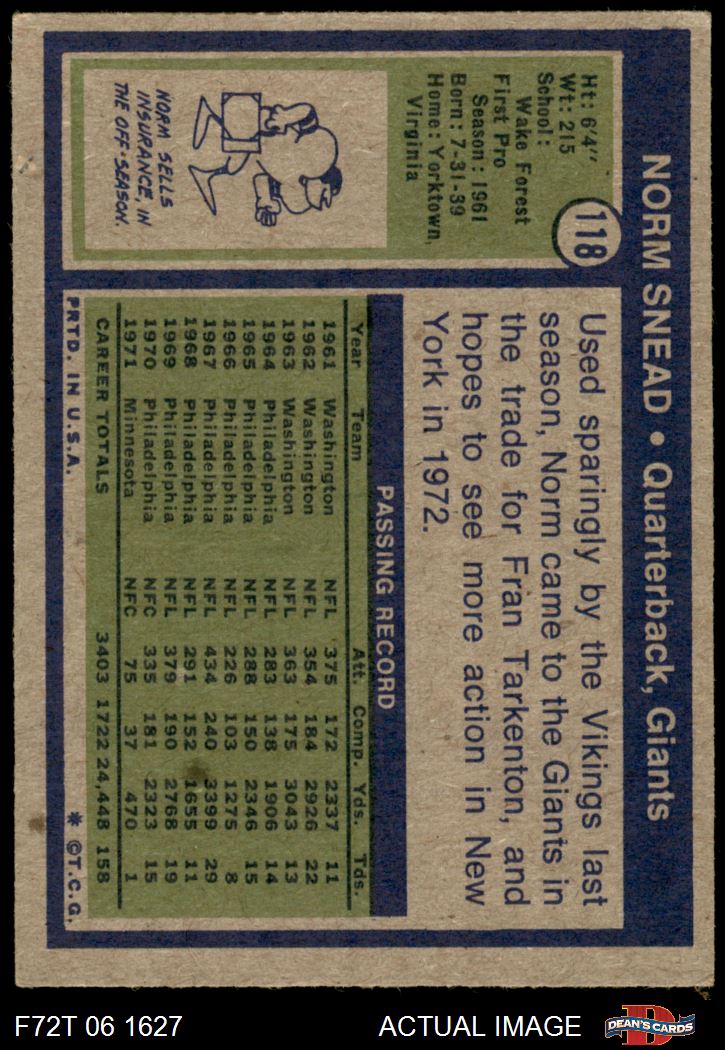 NORM SNEAD • Quarterback, Giants
118
Ht: 6'4"
Wt: 215
School:
Wake Forest
First Pro
Season: 1961
Born: 7-31-39
Home: Yorktown,
Virginia
NORM SELLS
INSURANCE, IN
THE OFF-SEASON.
Used sparingly by the Vikings last
season, Norm came to the Giants in
the trade for Fran Tarkenton, and
hopes to see more action in New
York in 1972.
PASSING RECORD
Year Team Att. Comp. Yds. Tds.
1961 Washington NFL 375 172 2337 11
1962 Washington NFL 354 184 2926 22
1963 Washington NFL 363 175 3043 13
1964 Philadelphia NFL 283 138 1906 14
1965 Philadelphia NFL 288 150 2346 15
1966 Philadelphia NFL 226 103 1275 8
1967 Philadelphia NFL 434 240 3399 29
1968 Philadelphia NFL 291 152 1655 11
1969 Philadelphia NFL 379 190 2768 19
1970 Philadelphia NFC 335 181 2323 15
1971 Minnesota NFC 75 37 470 1
CAREER TOTALS 3403 1722 24,448 158
PRTD. IN U.S.A. * ©T.C.G.
F72T 06 1627 ACTUAL IMAGE
D
DEAN'S CARDS